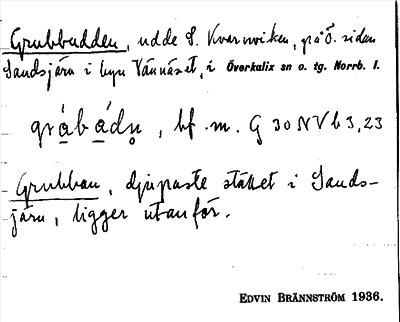 Grubbudden, udde S. Kvarnviken, på Ö. sidan
Sandsjärv i byn Vännäset, i Överkalix sn o. tg. Norrb. l.
grábádn̥, bf. m. G 30 NV b 3, 23
Grubban, djupaste stället i Sands-
järv, ligger utanför.
EDVIN BRÄNNSTRÖM 1936.